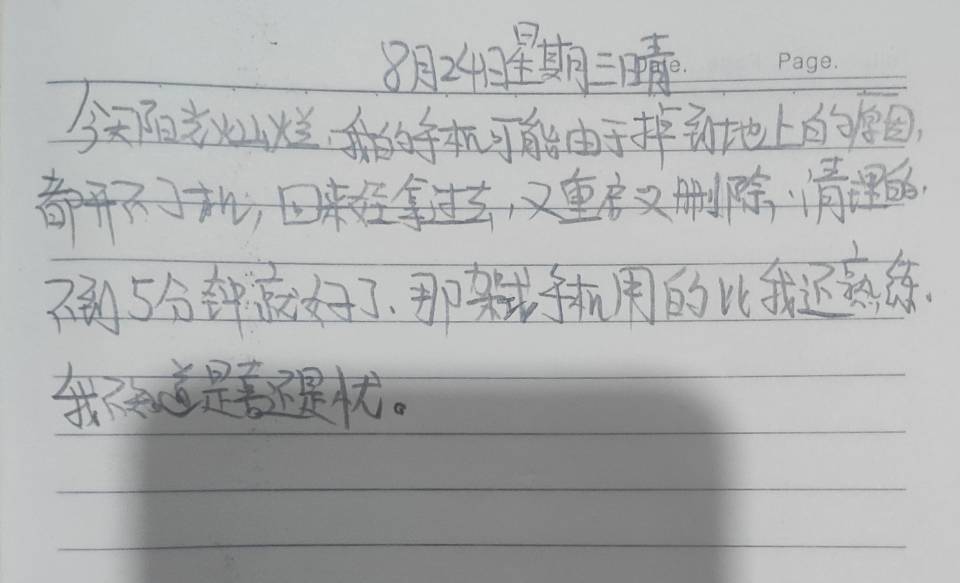 8月24日星期三晴
Page.
今天阳光火山烂,我的手机可能由于掉到地上的原因,
都开不了机,回来 拿过去,又重启又删除,清理的,
不到5分钟就好了、那架式手机用的比我还熟练.
我不知道是喜还是忧。